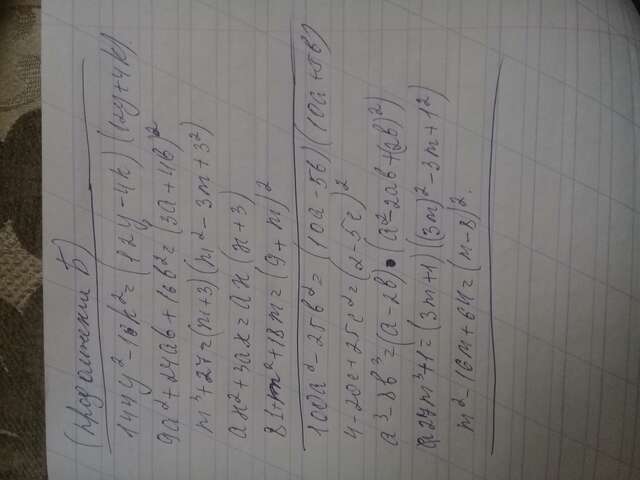 (продолжении Б)
144y²-16k²=(12y-4k)(12y+4k).
9a²+24ab+16b²=(3a+4b)²
m³+27=(m+3)(m²-3m+3²)
ax²+3ax=ax(x+3)
81+m²+18m=(9+m)²
100a²-25b²=(10a-5b)(10a+5b)
4-20c+25c²=(2-5c)²
a³-8b³=(a-2b)•(a²-2ab+(2b)²)
27m³+1=(3m+1)((3m)²-3m+1²)
m²-16m+64=(m-8)².